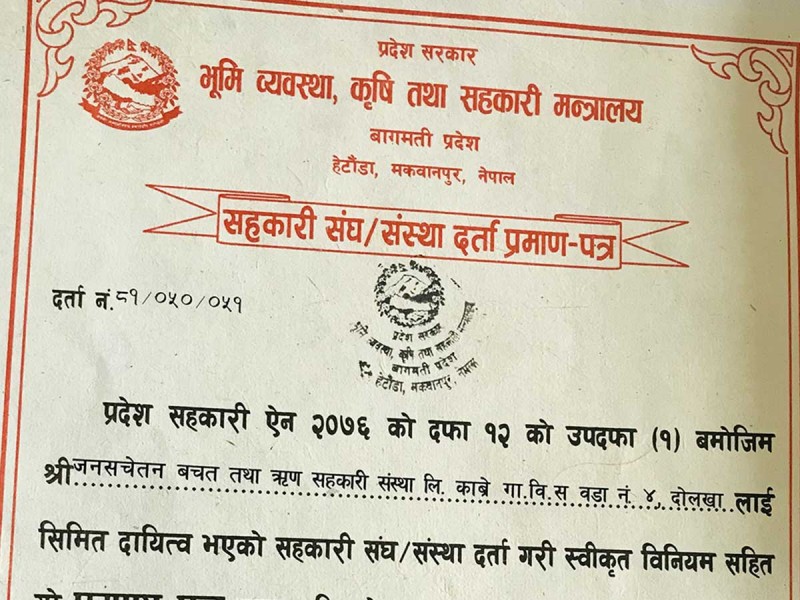 प्रदेश सरकार
भूमि व्यवस्था, कृषि तथा सहकारी मन्त्रालय
बागमती प्रदेश
हेटौंडा, मकवानपुर, नेपाल
सहकारी संघ/संस्था दर्ता प्रमाण-पत्र
दर्ता नं.८१/०५०/०५१
प्रदेश सरकार
भूमि व्यवस्था, कृषि तथा सहकारी मन्त्रालय
बागमती प्रदेश
हेटौंडा, मकवानपुर, नेपाल
प्रदेश सहकारी ऐन २०७६ को दफा १२ को उपदफा (१) बमोजिम
श्री जनसचेतन बचत तथा ऋण सहकारी संस्था लि. काब्रे गा.वि.स वडा नं. ४, दोलखा लाई
सिमित दायित्व भएको सहकारी संघ/संस्था दर्ता गरी स्वीकृत विनियम सहित